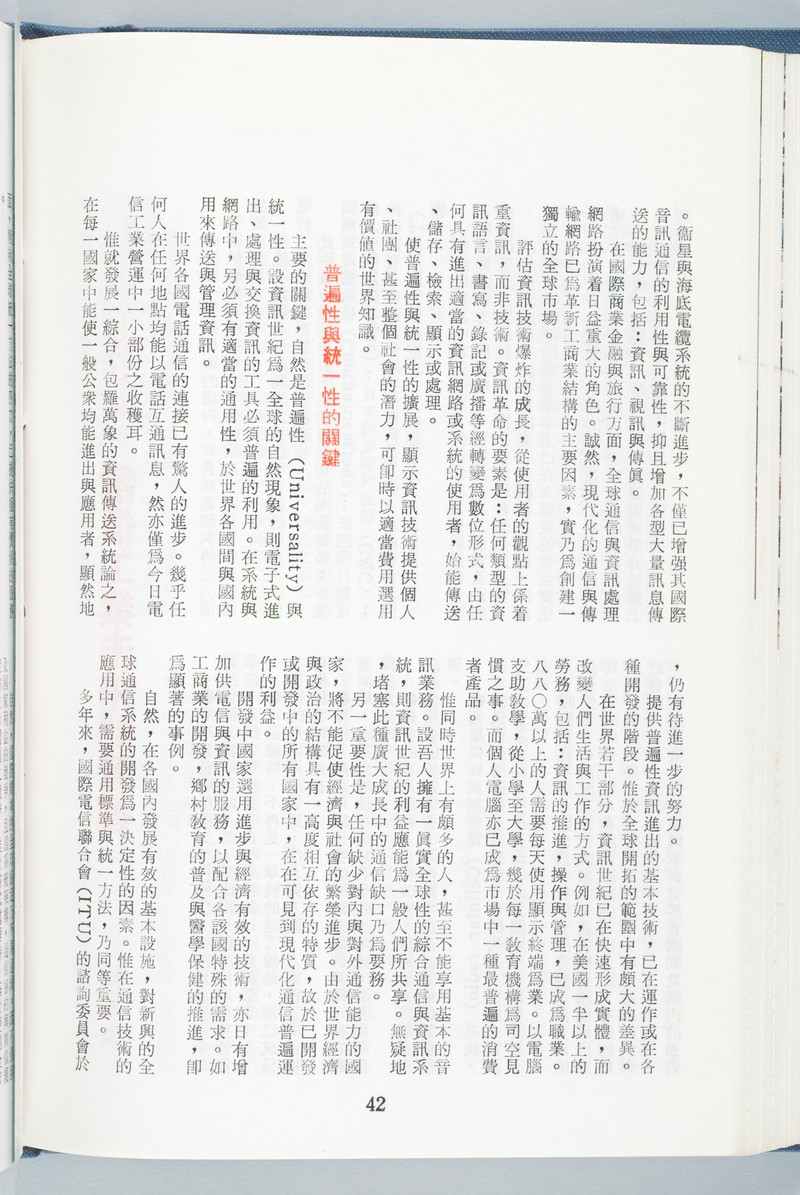 。衞星與海底電纜系統的不斷進步，不僅已增强其國際
音訊通信的利用性與可靠性，抑且增加各型大量訊息傳
送的能力，包括：資訊、視訊與傳眞。
在國際商業金融與旅行方面，全球通信與資訊處理
網路扮演着日益重大的角色。誠然，現代化的通信與傳
輸網路已爲革新工商業結構的主要因素，實乃爲創建一
獨立的全球市場。
評估資訊技術爆炸的成長，從使用者的觀點上係着
重資訊，而非技術。資訊革命的要素是：任何類型的資
訊語言、書寫、錄記或廣播等經轉變爲數位形式，由任
何具有進出適當的資訊網路或系統的使用者，始能傳送
、儲存、檢索、顯示或處理。
使普遍性與統一性的擴展，顯示資訊技術提供個人
、社團、甚至整個社會的潛力，可卽時以適當費用選用
有價値的世界知識。
普遍性與統一性的關鍵
主要的關鍵，自然是普遍性（Universality）與
統一性。設資訊世紀爲一全球的自然現象，則電子式進
出、處理與交換資訊的工具必須普遍的利用。在系統與
網路中，另必須有適當的通用性，於世界各國間與國內
用來傳送與管理資訊。
世界各國電話通信的連接已有驚人的進步。幾乎任
何人在任何地點均能以電話互通訊息，然亦僅爲今日電
信工業營運中一小部份之收穫耳。
惟就發展一綜合，包羅萬象的資訊傳送系統論之，
在每一國家中能使一般公衆均能進出與應用者，顯然地
，仍有待進一步的努力。
提供普遍性資訊進出的基本技術，已在運作或在各
種開發的階段。惟於全球開拓的範圍中有頗大的差異。
在世界若干部分，資訊世紀已在快速形成實體，而
改變人們生活與工作的方式。例如，在美國一半以上的
勞務，包括：資訊的推進，操作與管理，已成爲職業。
八八〇萬以上的人需要每天使用顯示終端爲業。以電腦
支助教學，從小學至大學，幾於每一敎育機構爲司空見
慣之事。而個人電腦亦已成爲市場中一種最普遍的消費
者產品。
惟同時世界上有頗多的人，甚至不能享用基本的音
訊業務。設吾人擁有一眞實全球性的綜合通信與資訊系
統，則資訊世紀的利益應能爲一般人們所共享。無疑地
，堵塞此種廣大成長中的通信缺口乃爲要務。
另一重要性是，任何缺少對內與對外通信能力的國
家，將不能促使經濟與社會的繁榮進步。由於世界經濟
與政治的結構具有一高度相互依存的特質，故於已開發
或開發中的所有國家中，在在可見到現代化通信普遍運
作的利益。
開發中國家選用進步與經濟有效的技術，亦日有增
加供電信與資訊的服務，以配合各該國特殊的需求。如
工商業的開發，鄉村敎育的普及與醫學保健的推進，卽
爲顯著的事例。
自然，在各國內發展有效的基本設施，對新興的全
球通信系統的開發爲一決定性的因素。惟在通信技術的
應用中，需要通用標準與統一方法，乃同等重要。
多年來，國際電信聯合會（ITU）的諮詢委員會於
42